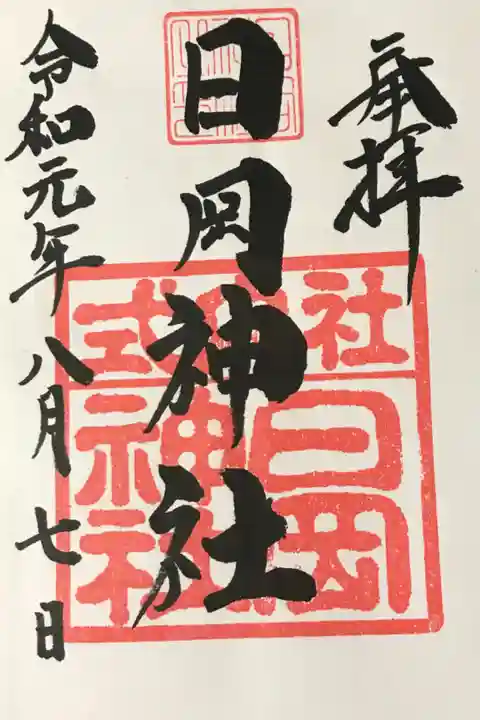 奉拝
日岡神社
令和元年八月七日
式内社
日岡
神社